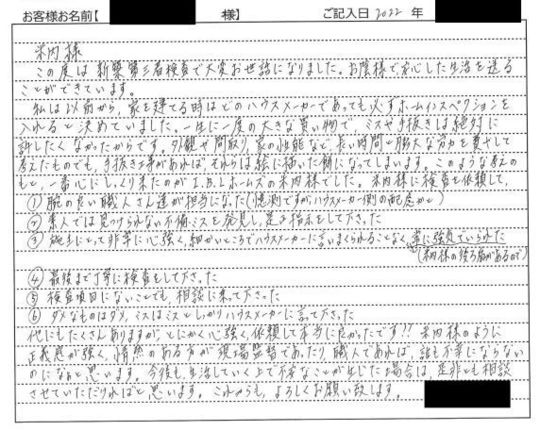 お客様お名前【 様】 ご記入日 2022 年
米内様
この度は新築第三者検査で大変お世話になりました。お陰様で安心した生活を送る
ことができています。
私は以前から、家を建てる時はどのハウスメーカーであっても必ずホームインスペクションを
入れると決めていました。一生に一度の大きな買い物で、ミスや手抜きは絶対に
許したくなかったからです。外観や間取り、家の性能など、長い時間と膨大な労力を費やして
考えたものでも、手抜き工事があれば、それらは絵に描いた餅になってしまいます。このような考えの
もと、一番心にしっくり来たのがI.B.Lホームズの米内様でした。米内様に検査を依頼して、
① 腕の良い職人さん達が担当になった(憶測ですがハウスメーカー側の配慮かと)
② 素人では見つけられない不備・ミスを発見し、是正指示をして下さった
③ 施主にとって非常に心強く、細かいところでハウスメーカーに言いまくられることなく、常に強気でいられた
(米内様の後ろ盾があるので)
④ 最後まで丁寧に検査をして下さった
⑤ 検査項目にないことでも、相談に乗って下さった
⑥ ダメなものはダメ、ミスはミスとしっかりハウスメーカーに言って下さった
他にもたくさんありますが、とにかく心強く、依頼して本当に良かったです!! 米内様のように
正義感が強く、情熱のある方が現場監督であったり、職人であれば、誰も不幸にならない
のになぁと思います。今後も、生活していく上で不安なことが生じた場合は、是非とも相談
させていただければと思います。これからも、よろしくお願い致します。